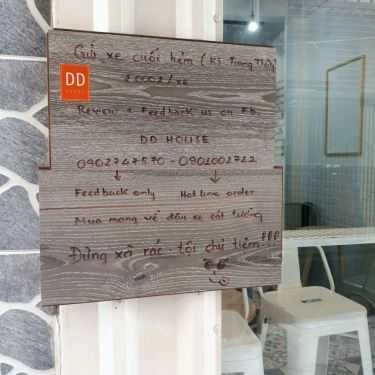 Gửi xe cuối hẻm (KS Trung
2000đ/xe
DD
Review & Feedback us on Fb
DD HOUSE
0902747570 - 0901002722
Feedback only Hotline order
Mua mang về đậu xe sát tường
Đừng xả rác tội chủ tiệm !!!